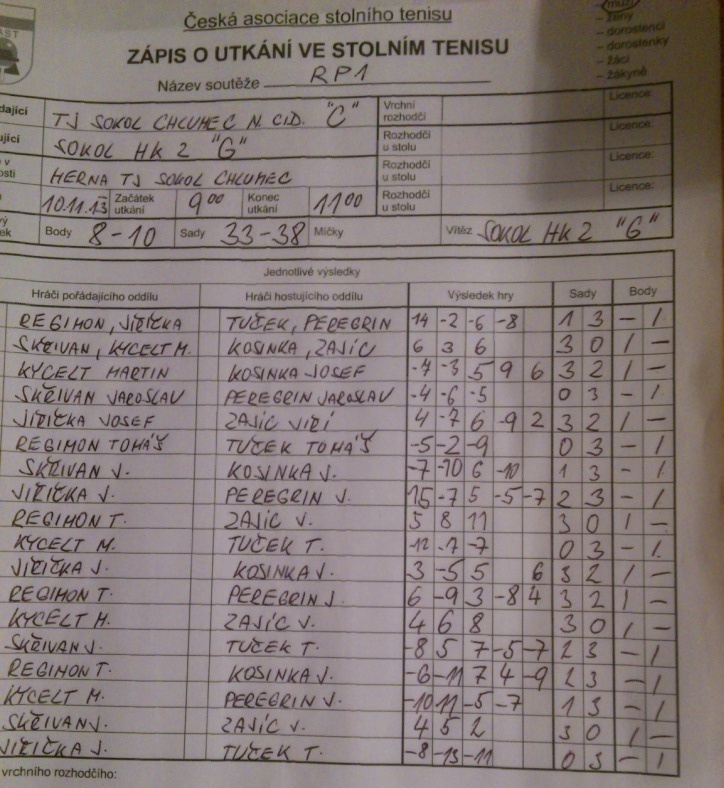 Česká asociace stolního tenisu
ZÁPIS O UTKÁNÍ VE STOLNÍM TENISU
Název soutěže RP1
muži
– ženy
– dorostenci
– dorostenky
– žáci
– žákyně
TJ SOKOL CHLUMEC N. CID. "C" Vrchní rozhodčí Licence:
SOKOL HK 2 "G" Rozhodčí u stolu Licence:
HERNA TJ SOKOL CHLUMEC Rozhodčí u stolu Licence:
10.11.13 Začátek utkání 9 00 Konec utkání 11 00 Rozhodčí u stolu Licence:
Body 8-10 Sady 33-38 Míčky Vítěz SOKOL HK 2 "G"
Jednotlivé výsledky
Hráči pořádajícího oddílu Hráči hostujícího oddílu Výsledek hry Sady Body
REGIMON, JIŘIČKA TUČEK, PEREGRIN 14 -2 -6 -8 1 3 – 1
SKŘIVAN, KYCELT M. KOSINKA, ZAJÍC 6 3 6 3 0 1 –
KYCELT MARTIN KOSINKA JOSEF -7 -3 5 9 6 3 2 1 –
SKŘIVAN JAROSLAV PEREGRIN JAROSLAV -4 -6 -5 0 3 – 1
JIŘIČKA JOSEF ZAJÍC JIŘÍ 4 -7 6 -9 2 3 2 1 –
REGIMON TOMÁŠ TUČEK TOMÁŠ -5 -2 -9 0 3 – 1
SKŘIVAN J. KOSINKA J. -7 -10 6 -10 1 3 – 1
JIŘIČKA J. PEREGRIN J. 15 -7 5 -5 -7 2 3 – 1
REGIMON T. ZAJÍC J. 5 8 11 3 0 1 –
KYCELT M. TUČEK T. -12 -7 -7 0 3 – 1
JIŘIČKA J. KOSINKA J. 3 -5 5 6 3 2 1 –
REGIMON T. PEREGRIN J. 6 -9 3 -8 4 3 2 1 –
KYCELT M. ZAJÍC J. 4 6 8 3 0 1 –
SKŘIVAN J. TUČEK T. -8 5 7 -5 -7 2 3 – 1
REGIMON T. KOSINKA J. -6 -11 7 4 -9 2 3 – 1
KYCELT M. PEREGRIN J. -10 11 -5 -7 1 3 – 1
SKŘIVAN J. ZAJÍC J. 4 5 2 3 0 1 –
JIŘIČKA J. TUČEK T. -8 -13 -11 0 3 – 1
vrchního rozhodčího: